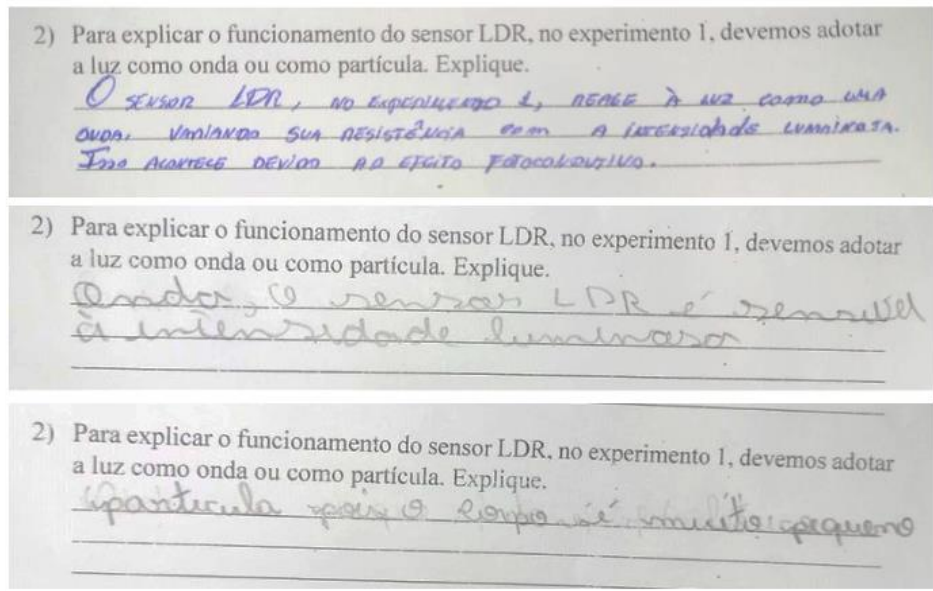 2) Para explicar o funcionamento do sensor LDR, no experimento 1, devemos adotar
a luz como onda ou como partícula. Explique.
O SENSOR LDR, NO EXPERIMENTO 1, REAGE À LUZ COMO UMA
ONDA, VARIANDO SUA RESISTÊNCIA COM A INTENSIDADE LUMINOSA.
ISSO ACONTECE DEVIDO AO EFEITO FOTOCONDUTIVO.
2) Para explicar o funcionamento do sensor LDR, no experimento 1, devemos adotar
a luz como onda ou como partícula. Explique.
Onda, O sensor LDR é sensível
à intensidade luminosa
2) Para explicar o funcionamento do sensor LDR, no experimento 1, devemos adotar
a luz como onda ou como partícula. Explique.
partícula pois o corpo é muito pequeno